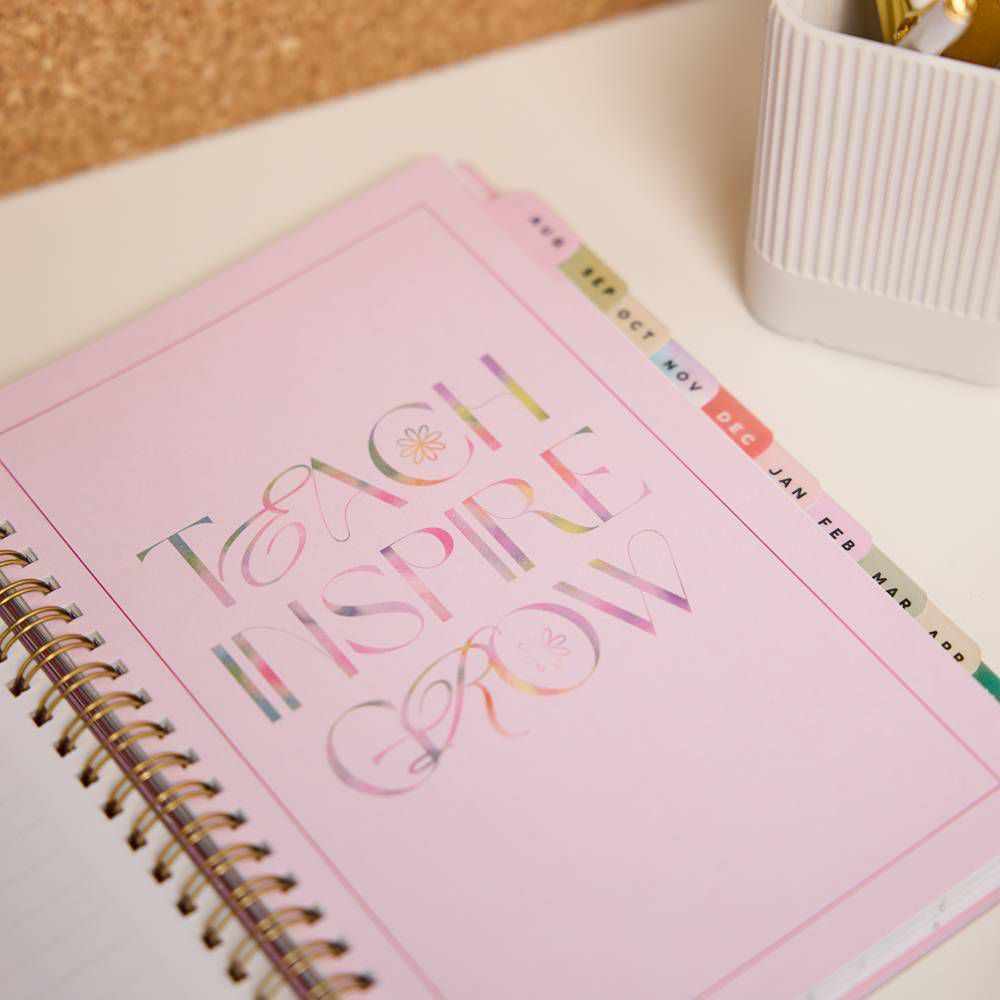 TEACH
INSPIRE
GROW
AUG
SEP
OCT
NOV
DEC
JAN
FEB
MAR
APR